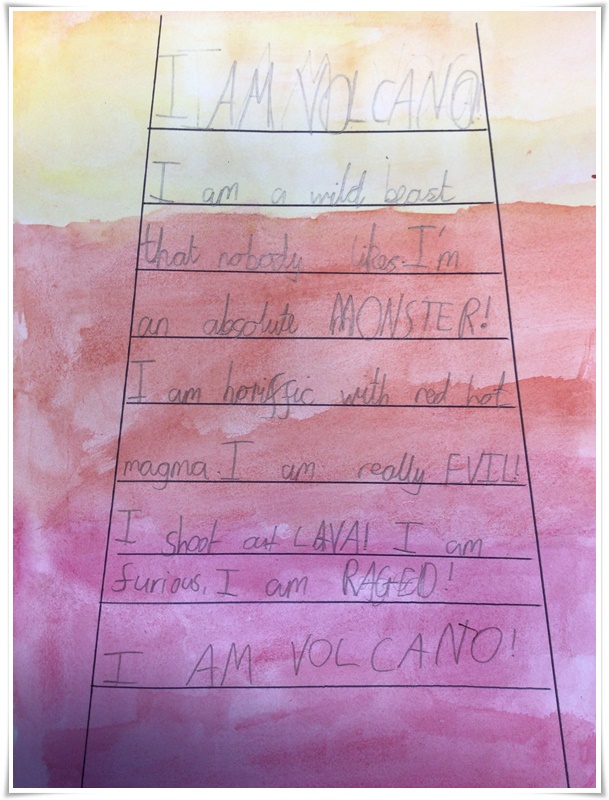 I AM VOLCANO!
I am a wild beast
that nobody likes. I'm
an absolute MONSTER!
I am horiffic with red hot
magma. I am really EVIL!
I shoot out LAVA! I am
furious, I am RAGHED!
I AM VOLCANO!